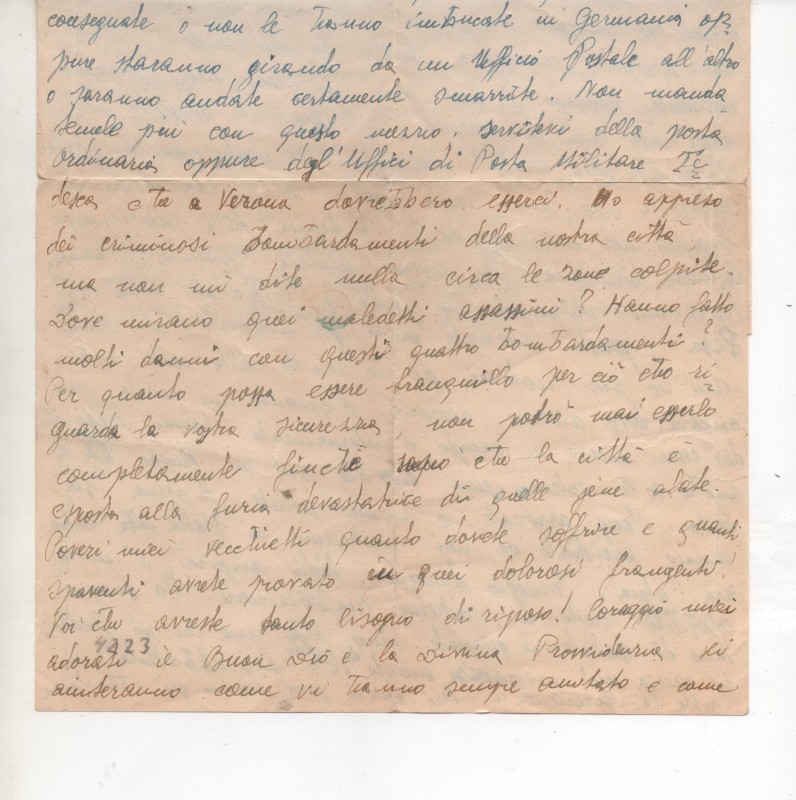 consegnate o non le hanno imbucate in Germania op=
pure staranno girando da un Ufficio Postale all'altro
o saranno andate certamente smarrite. Non manda
temele più con questo mezzo. Servitevi della posta
ordinaria oppure degl'Uffici di Posta Militare Te=
desca che a Verona dovrebbero esserci. Ho appreso
dei criminosi bombardamenti della nostra città,
ma non mi dite nulla circa le zone colpite.
Dove mirano quei maledetti assassini? Hanno fatto
molti danni con questi quattro bombardamenti?
Per quanto possa essere tranquillo per ciò che ri=
guarda la vostra sicurezza, non potrò mai esserlo
completamente finchè saprò che la città è
esposta alla furia devastatrice di quelle jene alate.
Poveri miei vecchietti quanto dovete soffrire e quanti
spaventi avrete provato in quei dolorosi frangenti!
Voi che avreste tanto bisogno di riposo! Coraggio miei
adorati il Buon Dio e la Divina Provvidenza vi
aiuteranno come vi hanno sempre aiutato e come
4223